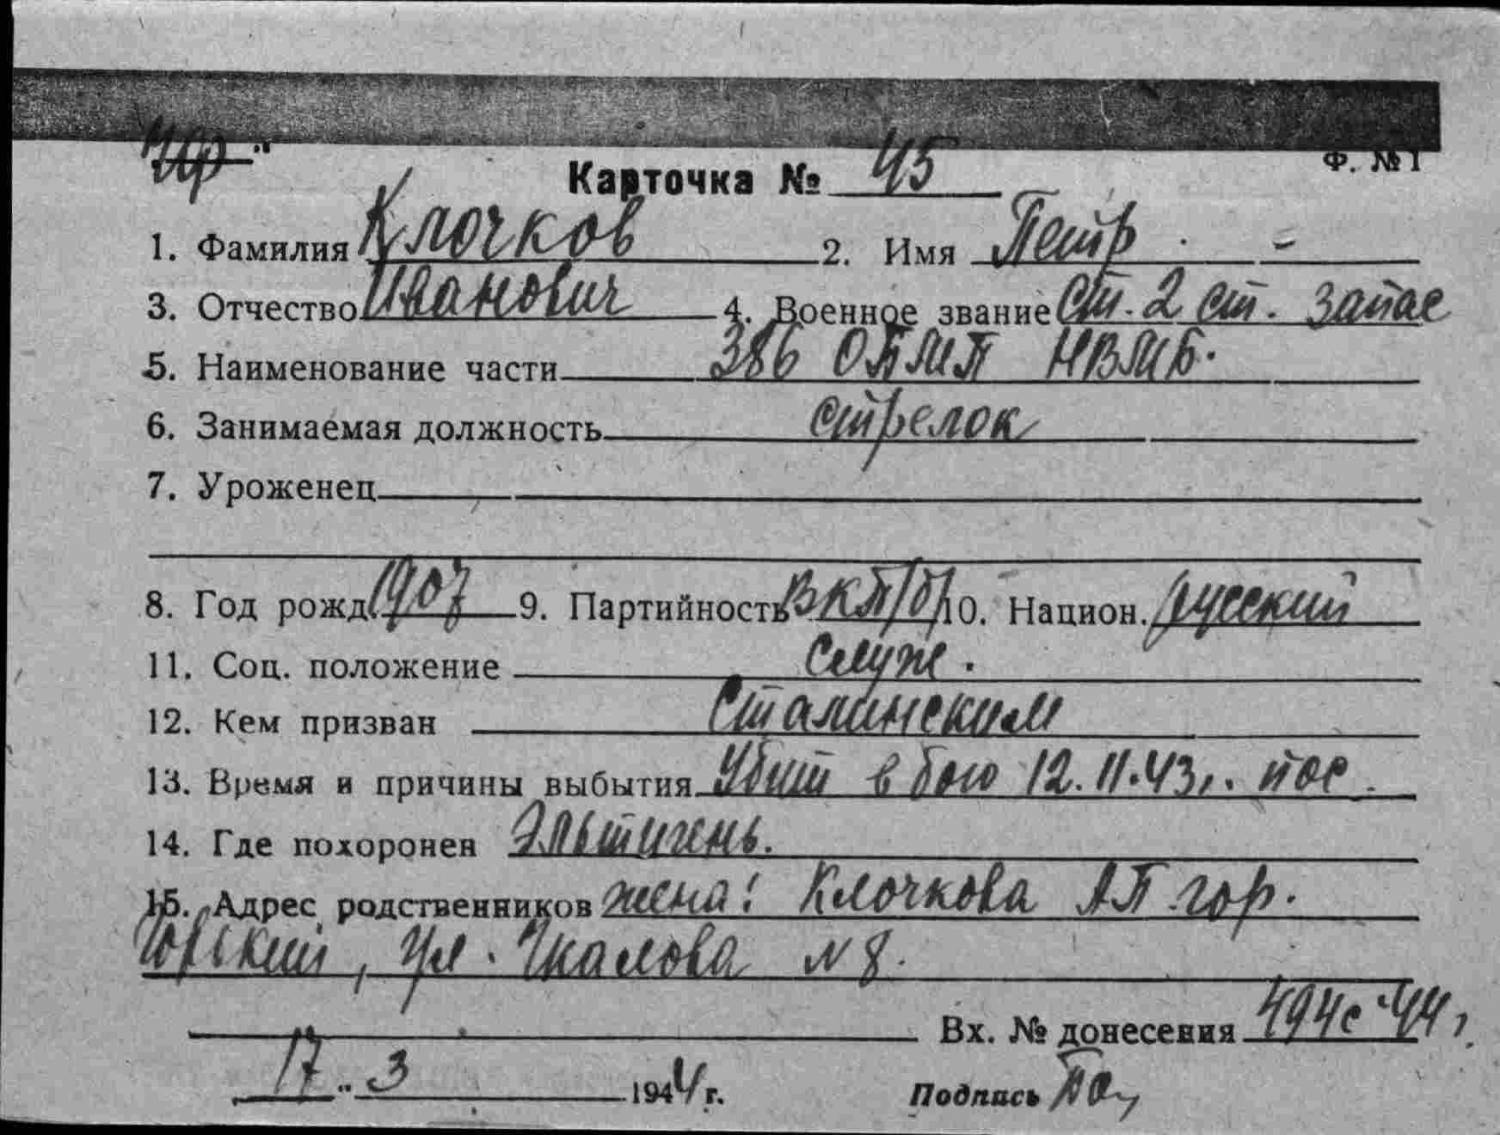 Ф. №1
Карточка № 45
1. Фамилия Клочков 2. Имя Петр -
3. Отчество Иванович 4. Военное звание ст. 2 ст. запас
5. Наименование части 386 ОБМП НВМБ.
6. Занимаемая должность стрелок
7. Уроженец
8. Год рожд. 1907 9. Партийность ВКП/б/ 10. Национ. русский
11. Соц. положение служ.
12. Кем призван Сталинским
13. Время и причины выбытия Убит в бою 12.11.43г. пос.
14. Где похоронен Эльтиген.
15. Адрес родственников жена: Клочкова А.П. гор.
ул. Чкалова № 8.
Вх. № донесения 494с-44г.
17 " 3 1944 г. Подпись